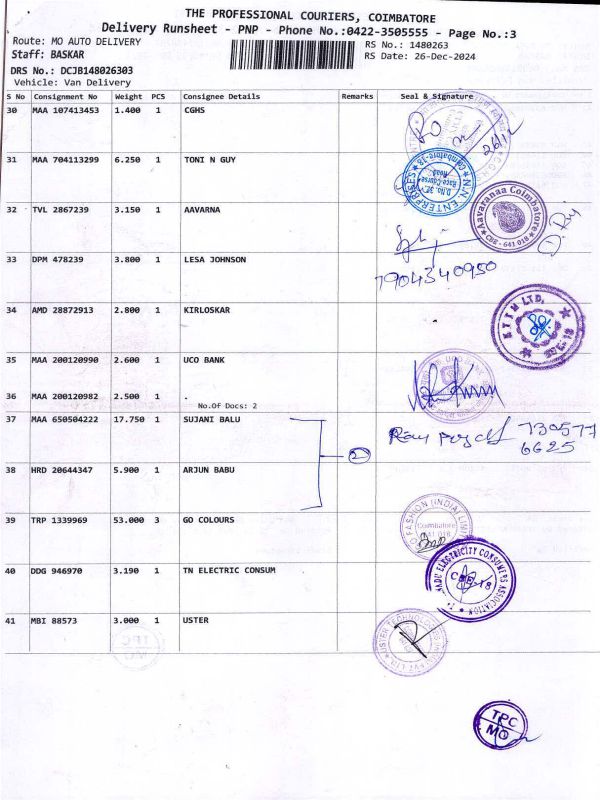 THE PROFESSIONAL COURIERS, COIMBATORE
Delivery Runsheet - PNP - Phone No.:0422-3505555 - Page No.:3
Route: MO AUTO DELIVERY
RS No.: 1480263
Staff: BASKAR
RS Date: 26-Dec-2024
DRS No.: DCJB148026303
Vehicle: Van Delivery
S No Consignment No Weight PCS Consignee Details Remarks Seal & Signature
30 MAA 107413453 1.400 1 CGHS
26/12
31 MAA 704113299 6.250 1 TONI N GUY
N.N. ENTERPRISES
D.No. 35
Race-Course
Road
Coimbatore-18
32 TVL 2867239 3.150 1 AAVARNA
Aavaranaa Coimbatore
CBE - 641 018
33 DPM 478239 3.800 1 LESA JOHNSON
7904340950
34 AMD 28872913 2.800 1 KIRLOSKAR
LTD.
35 MAA 200120990 2.600 1 UCO BANK
36 MAA 200120982 2.500 1 .
No.Of Docs: 2
37 MAA 650504222 17.750 1 SUJANI BALU
730577
6625
2
38 HRD 20644347 5.900 1 ARJUN BABU
39 TRP 1339969 53.000 3 GO COLOURS
FASHION (INDIA) LIMITED
Coimbatore
40 DDG 946970 3.190 1 TN ELECTRIC CONSUM
NADU ELECTRICITY CONSUMERS ASSOCIATION
CBE-18
41 MBI 88573 3.000 1 USTER
USTER TECHNOLOGIES (INDIA) PVT LTD.
TPC
MO
TPC
MO